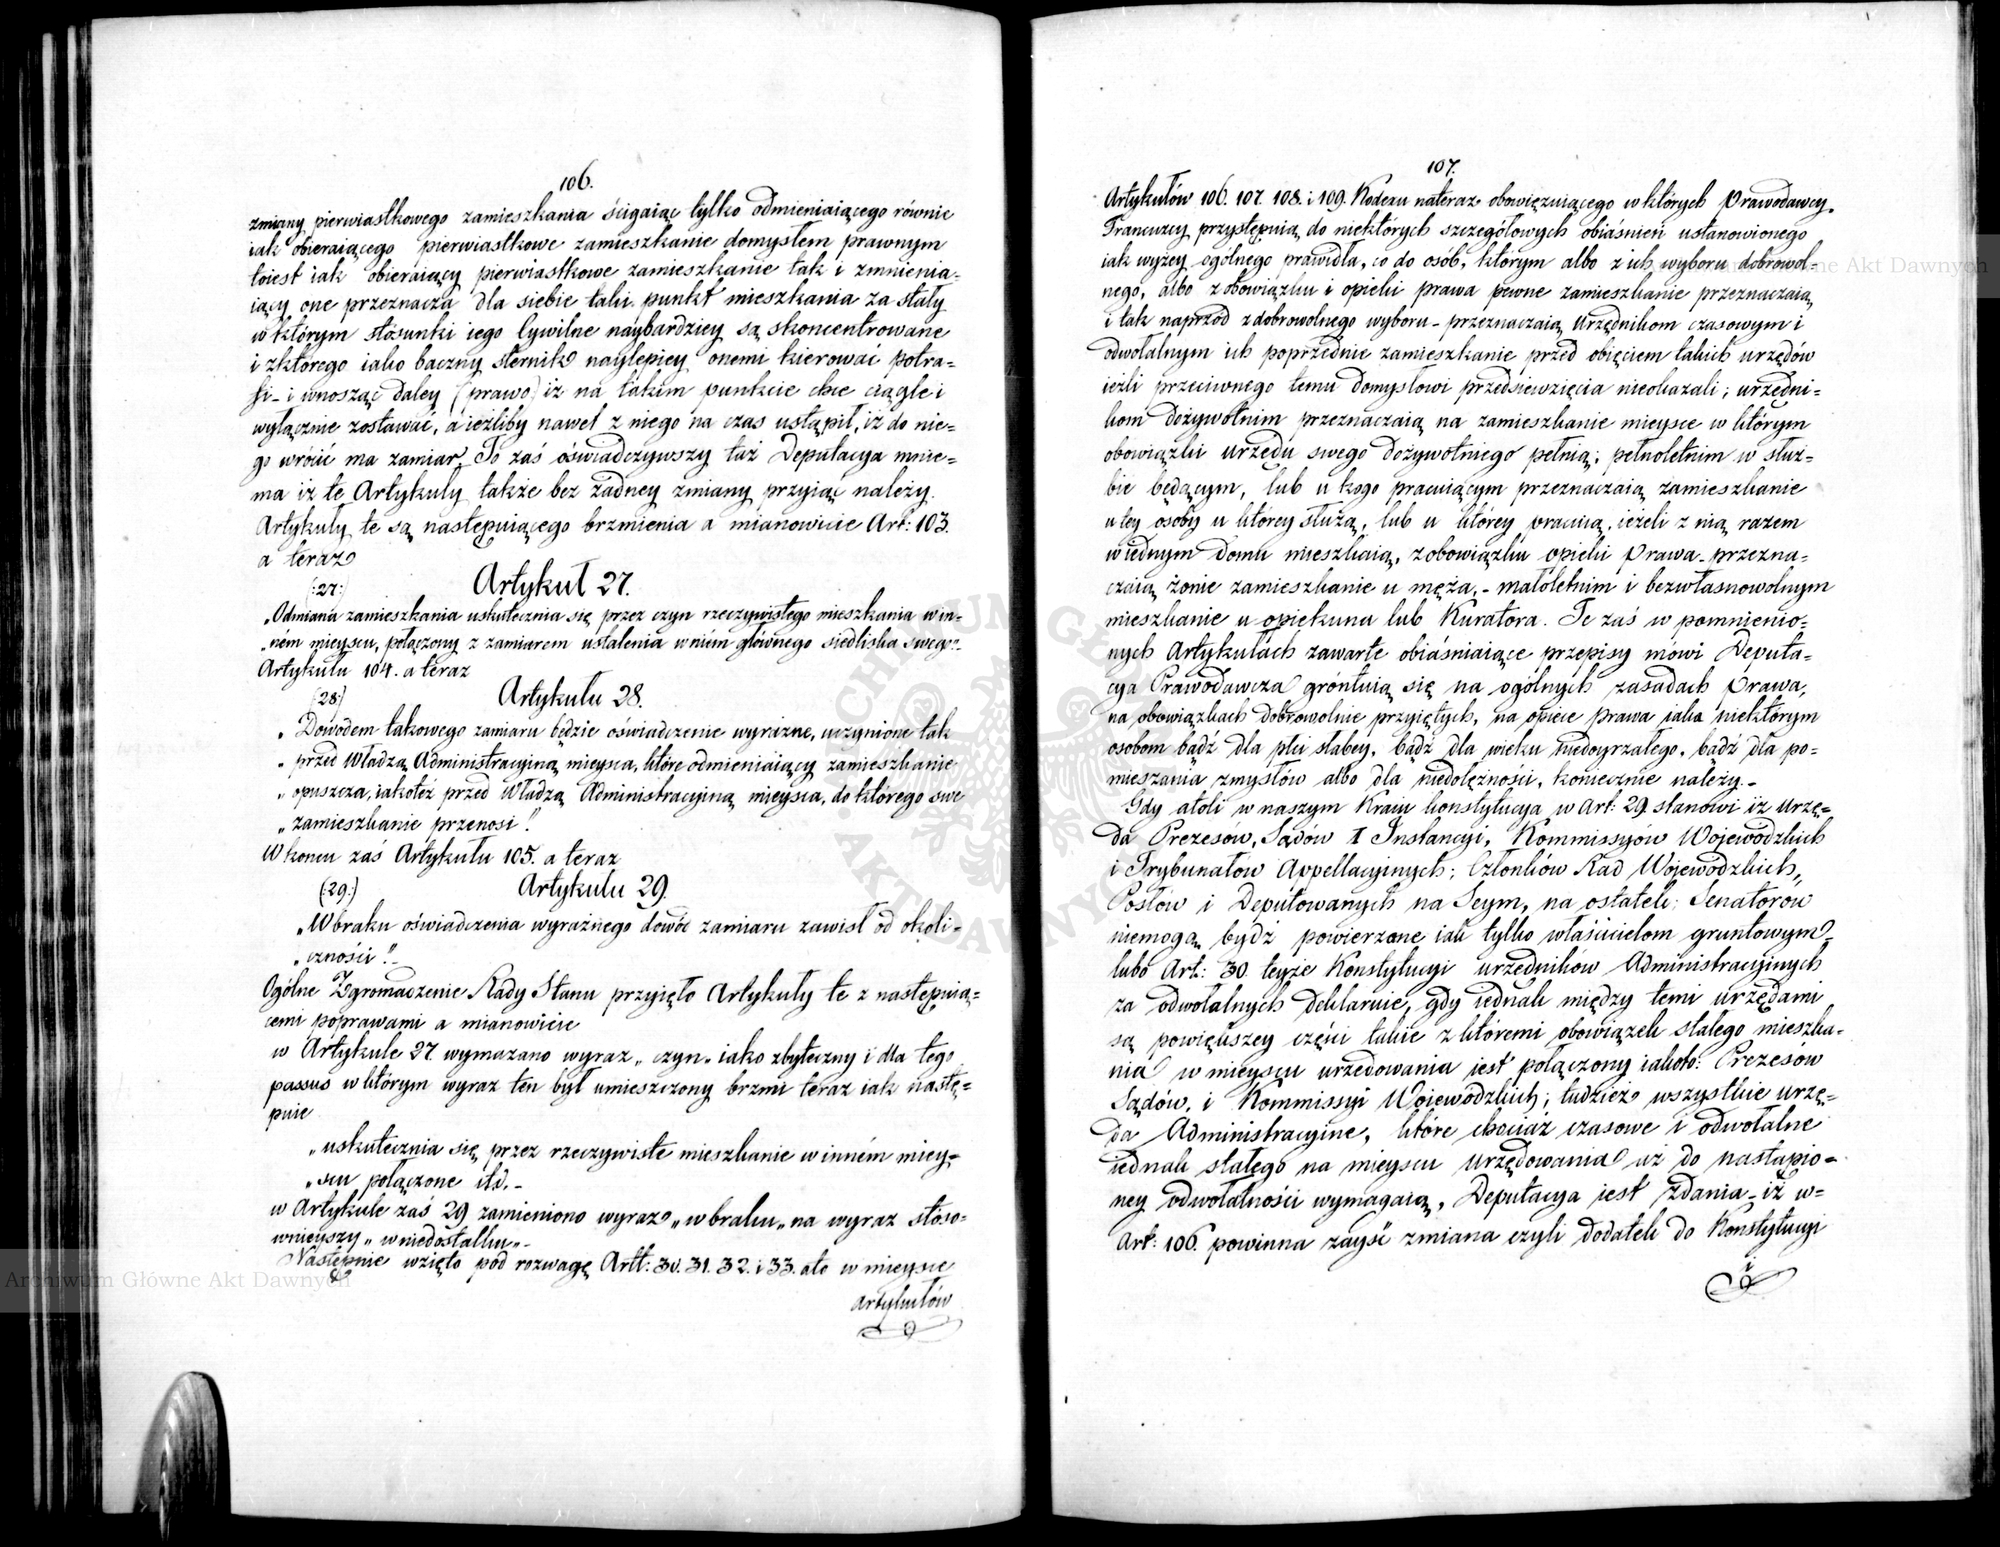 106.
zmiany pierwiastkowego zamieszkania ścigaiąc tylko odmieniaiącego równie
iak obieraiącego pierwiastkowe zamieszkanie domysłem prawnym
toiest iak obieraiący pierwiastkowe zamieszkanie tak i zmienia=
iący one przeznacza dla siebie taki punkt mieszkania za stały
w którym stosunki iego Cywilne naybardziey są skoncentrowane
i z którego iako baczny sternik naylepiey onemi kierować potra=
fi - i wnosząc daley (prawo) iż na takim punkcie chce ciągle i
wyłącznie zostawać, a ieżliby nawet z niego na czas ustąpił, iż do nie=
go wrócić ma zamiar. To zaś oświadczywszy taż Deputacya mnie=
ma iż te Artykuły także bez żadney zmiany przyiąć należy.
Artykuły te są następuiącego brzmienia a mianowicie Art: 103.
a teraz
Artykuł 27.
(:27:)
„Odmiana zamieszkania uskutecznia się przez czyn rzeczywistego mieszkania w in=
„ném mieyscu, połączony z zamiarem ustalenia w niém głównego siedliska swego“.
Artykułu 104. a teraz
Artykułu 28.
(28:)
„Dowodem takowego zamiaru będzie oświadczenie wyraźne, uczynione tak
„przed Władzą Administracyiną mieysca, które odmieniaiący zamieszkanie
„opuszcza, iakoteż przed Władzą Administracyiną mieysca, do którego swe
„zamieszkanie przenosi“.
W koncu zaś Artykułu 105. a teraz
Artykułu 29.
(29:)
„W braku oświadczenia wyraźnego dowód zamiaru zawisł od okoli=
„czności“.-
Ogólne Zgromadzenie Rady Stanu przyięło Artykuły te z następuią=
cemi poprawami a mianowicie
w Artykule 27. wymazano wyraz „czyn„ iako zbyteczny i dla tego
passus w którym wyraz ten był umieszczony brzmi teraz iak nastę=
puie
„uskutecznia się przez rzeczywiste mieszkanie w inném miey=
„scu połączone itd.-
w Artykule zaś 29 zamieniono wyraz „w braku„ na wyraz stoso=
wnieyszy „w niedostatku„-
Następnie wzięto pod rozwagę Artt: 30. 31. 32. i 33. ato w mieysce
Artykułów
107.
Artykułów 106. 107. 108. i 109. Kodexu nateraz obowięzuiącego w których Prawodawcy
Francuzcy przystępuią do niektórych szczegółowych obiaśnień ustanowionego
iak wyżey ogólnego prawidła, co do osób, którym albo z ich wyboru dobrowol=
nego, albo z obowiązku i opieki prawa pewne zamieszkanie przeznaczaią
i tak naprzód z dobrowolnego wyboru - przeznaczaią Urzędnikom czasowym i
odwołalnym ich poprzednie zamieszkanie przed obięciem takich urzędów
ieżli przeciwnego temu domysłowi przedsiewzięcia nieokazali; urzędni=
kom dożywotnim przeznaczaią na zamieszkanie mieysce w którym
obowiązki urzędu swego dożywotniego pełnią; pełnoletnim w służ=
bie będącym, lub u kogo pracuiącym przeznaczaią zamieszkanie
u tey osoby u którey służą, lub u którey pracuią, ieżeli z nią razem
w iednym domu mieszkaią, z obowiązku opieki Prawa - przezna=
czaią żonie zamieszkanie u męża,- małoletnim i bezwłasnowolnym
mieszkanie u opiekuna lub Kuratora. Te zaś w pomnienio=
nych Artykułach zawarte obiaśniaiące przepisy mówi Deputa=
cya Prawodawcza gróntuią się na ogólnych zasadach Prawa,
na obowiązkach dobrowolnie przyiętych, na opiece prawa iaka niektórym
osobom bądź dla płci słabey, bądź dla wieku niedoyrzałego, bądź dla po=
mieszania zmysłów albo dla niedołężności, koniecznie należy.-
Gdy atoli w naszym Kraiu konstytucya w Art: 29. stanowi iż urzę=
da Prezesów, Sądów I Instancyi, Kommissyów Woiewódzkich
i Trybunałów Appellacyinych; Członków Rad Woiewódzkich,
Posłów i Deputowanych na Seym, na ostatek; Senatorów
niemogą bydź powierzone iak tylko właścicielom gruntowym
lubo Art: 30. teyże Konstytucyi urzędników Administracyinych
za odwołalnych deklaruie, gdy iednak między temi urzędami
są powiększey części takie z któremi obowiązek stałego mieszka=
nia w mieyscu urzędowania iest połączony iakoto: Prezesów
Sądów, i Kommissyi Woiewódzkich; tudzież wszystkie urzę=
da Administracyine, które chociaż czasowe i odwołalne
iednak stałego na mieyscu urzędowania aż do nastąpio=
ney odwołalności wymagaią, Deputacya iest zdania - iż w=
Art: 106. powinna zayść zmiana czyli dodatek do Konstytucyi
Archiwum Główne Akt Dawnych